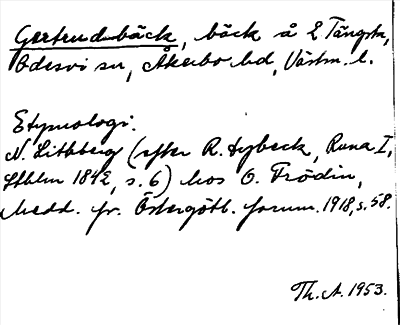 Gertrudsbäck, bäck å L Tängsta,
Odensvi sn, Åkerbo hd, Västm. l.
Etymologi.
N. Lithberg (efter R. Dybeck, Runa I,
Sthlm 1842, s. 6) hos O. Frödin,
Medd. fr. Östergötl. fornm. 1918, s. 58.
Th. A. 1953.